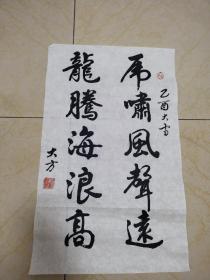 乙酉大雪
虎啸風聲遠
龍騰海浪高
大方